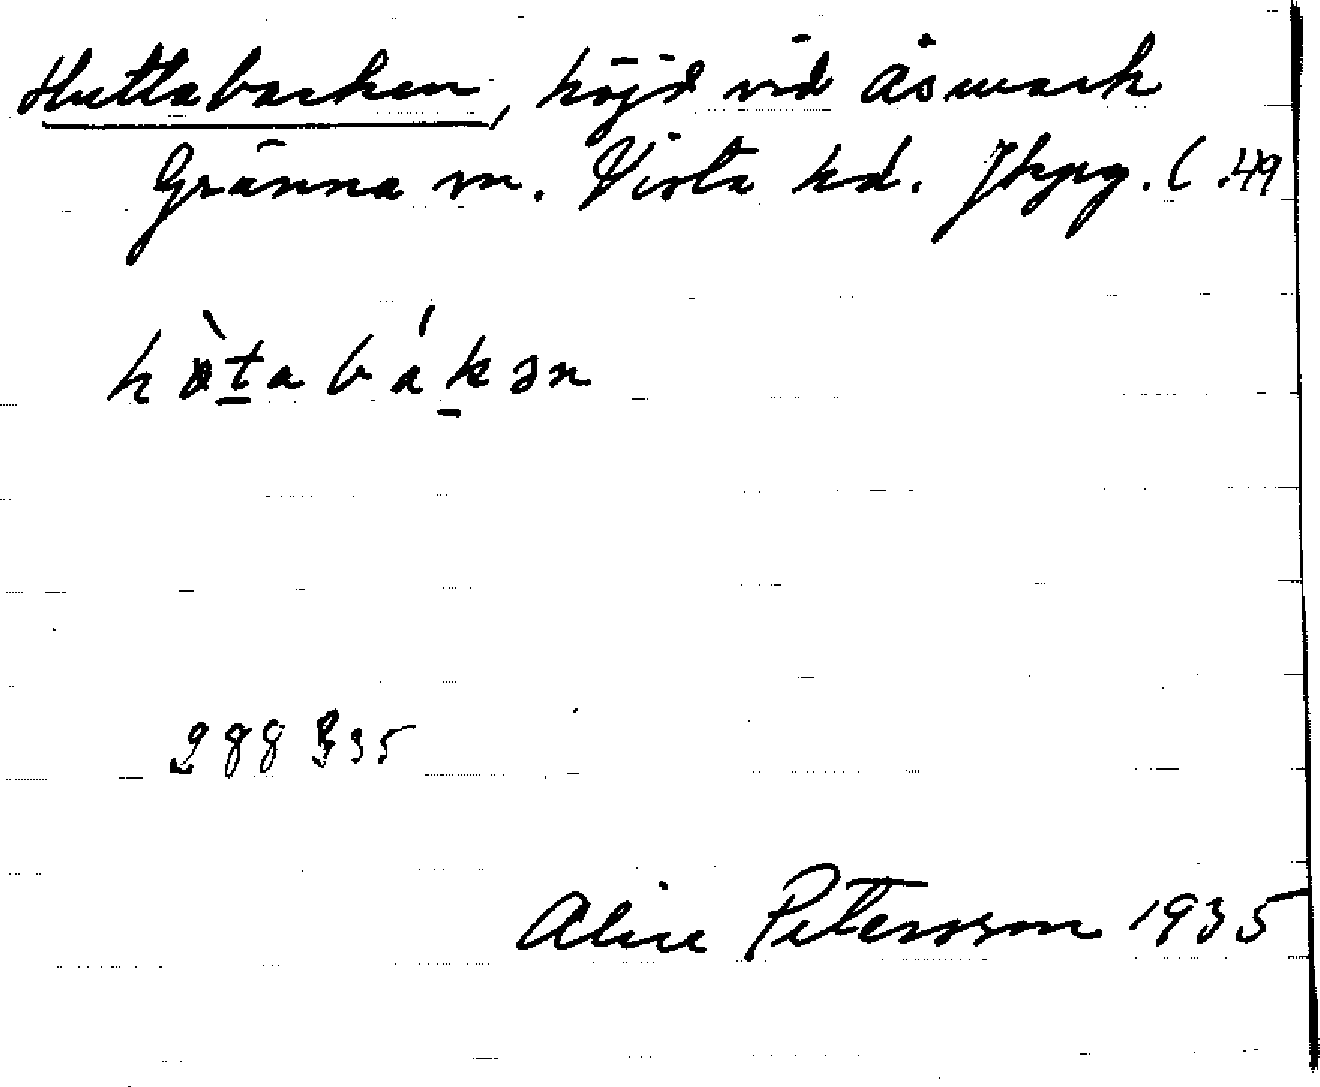 Huttabacken, höjd vid Åsmark
Gränna sn. Vista hd. Jkpg. l. 49
hòtabákən
288 335
Alice Petersson 1935